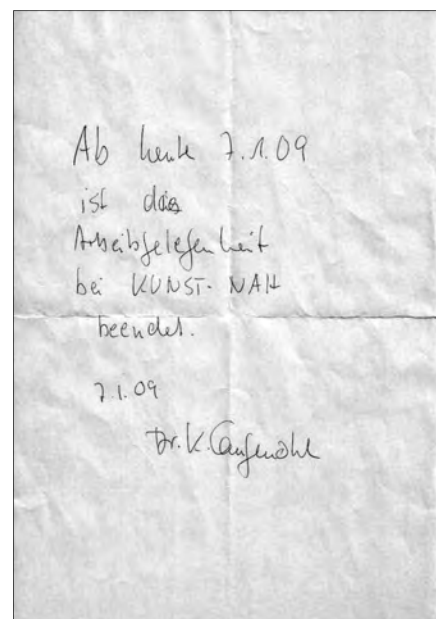 Ab heute 7.1.09
ist die
Arbeitsgelegenheit
bei KUNST-NAH
beendet.
7.1.09
Dr. K.